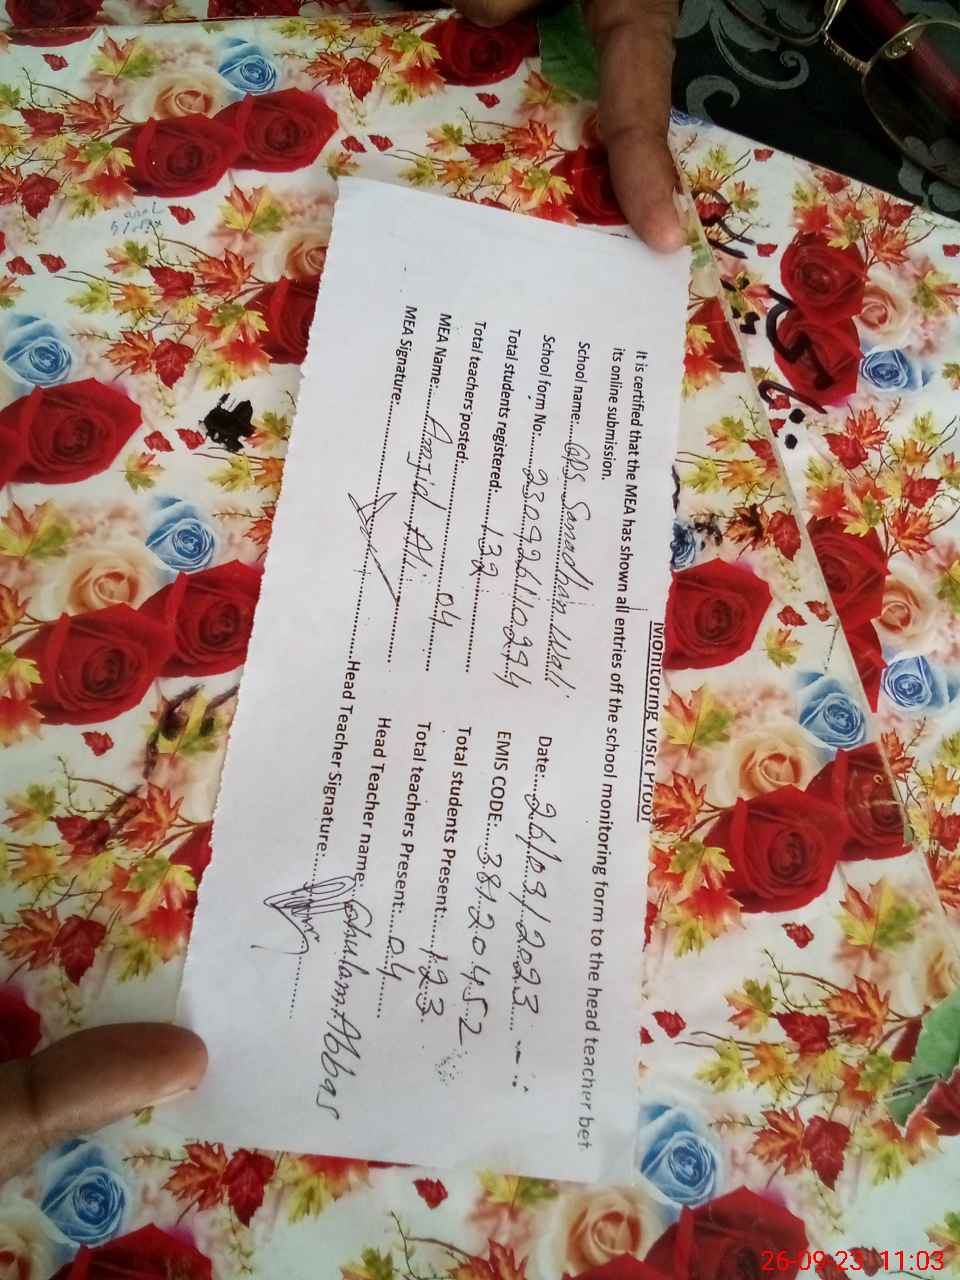 Monitoring Visit Proof
It is certified that the MEA has shown all entries off the school monitoring form to the head teacher bef
its online submission.
School name:....GPS Sanadhan Wali Date:....26/09/2023....
School form No:......23092611029 4 EMIS CODE:......38120452
Total students registered:......132...... Total students Present:....123..
Total teachers posted:......04...... Total teachers Present:....04......
MEA Name:......Amjid Ali...... Head Teacher name...Ghulam Abbas
MEA Signature:............Head Teacher Signature:............
26-09-23 11:03